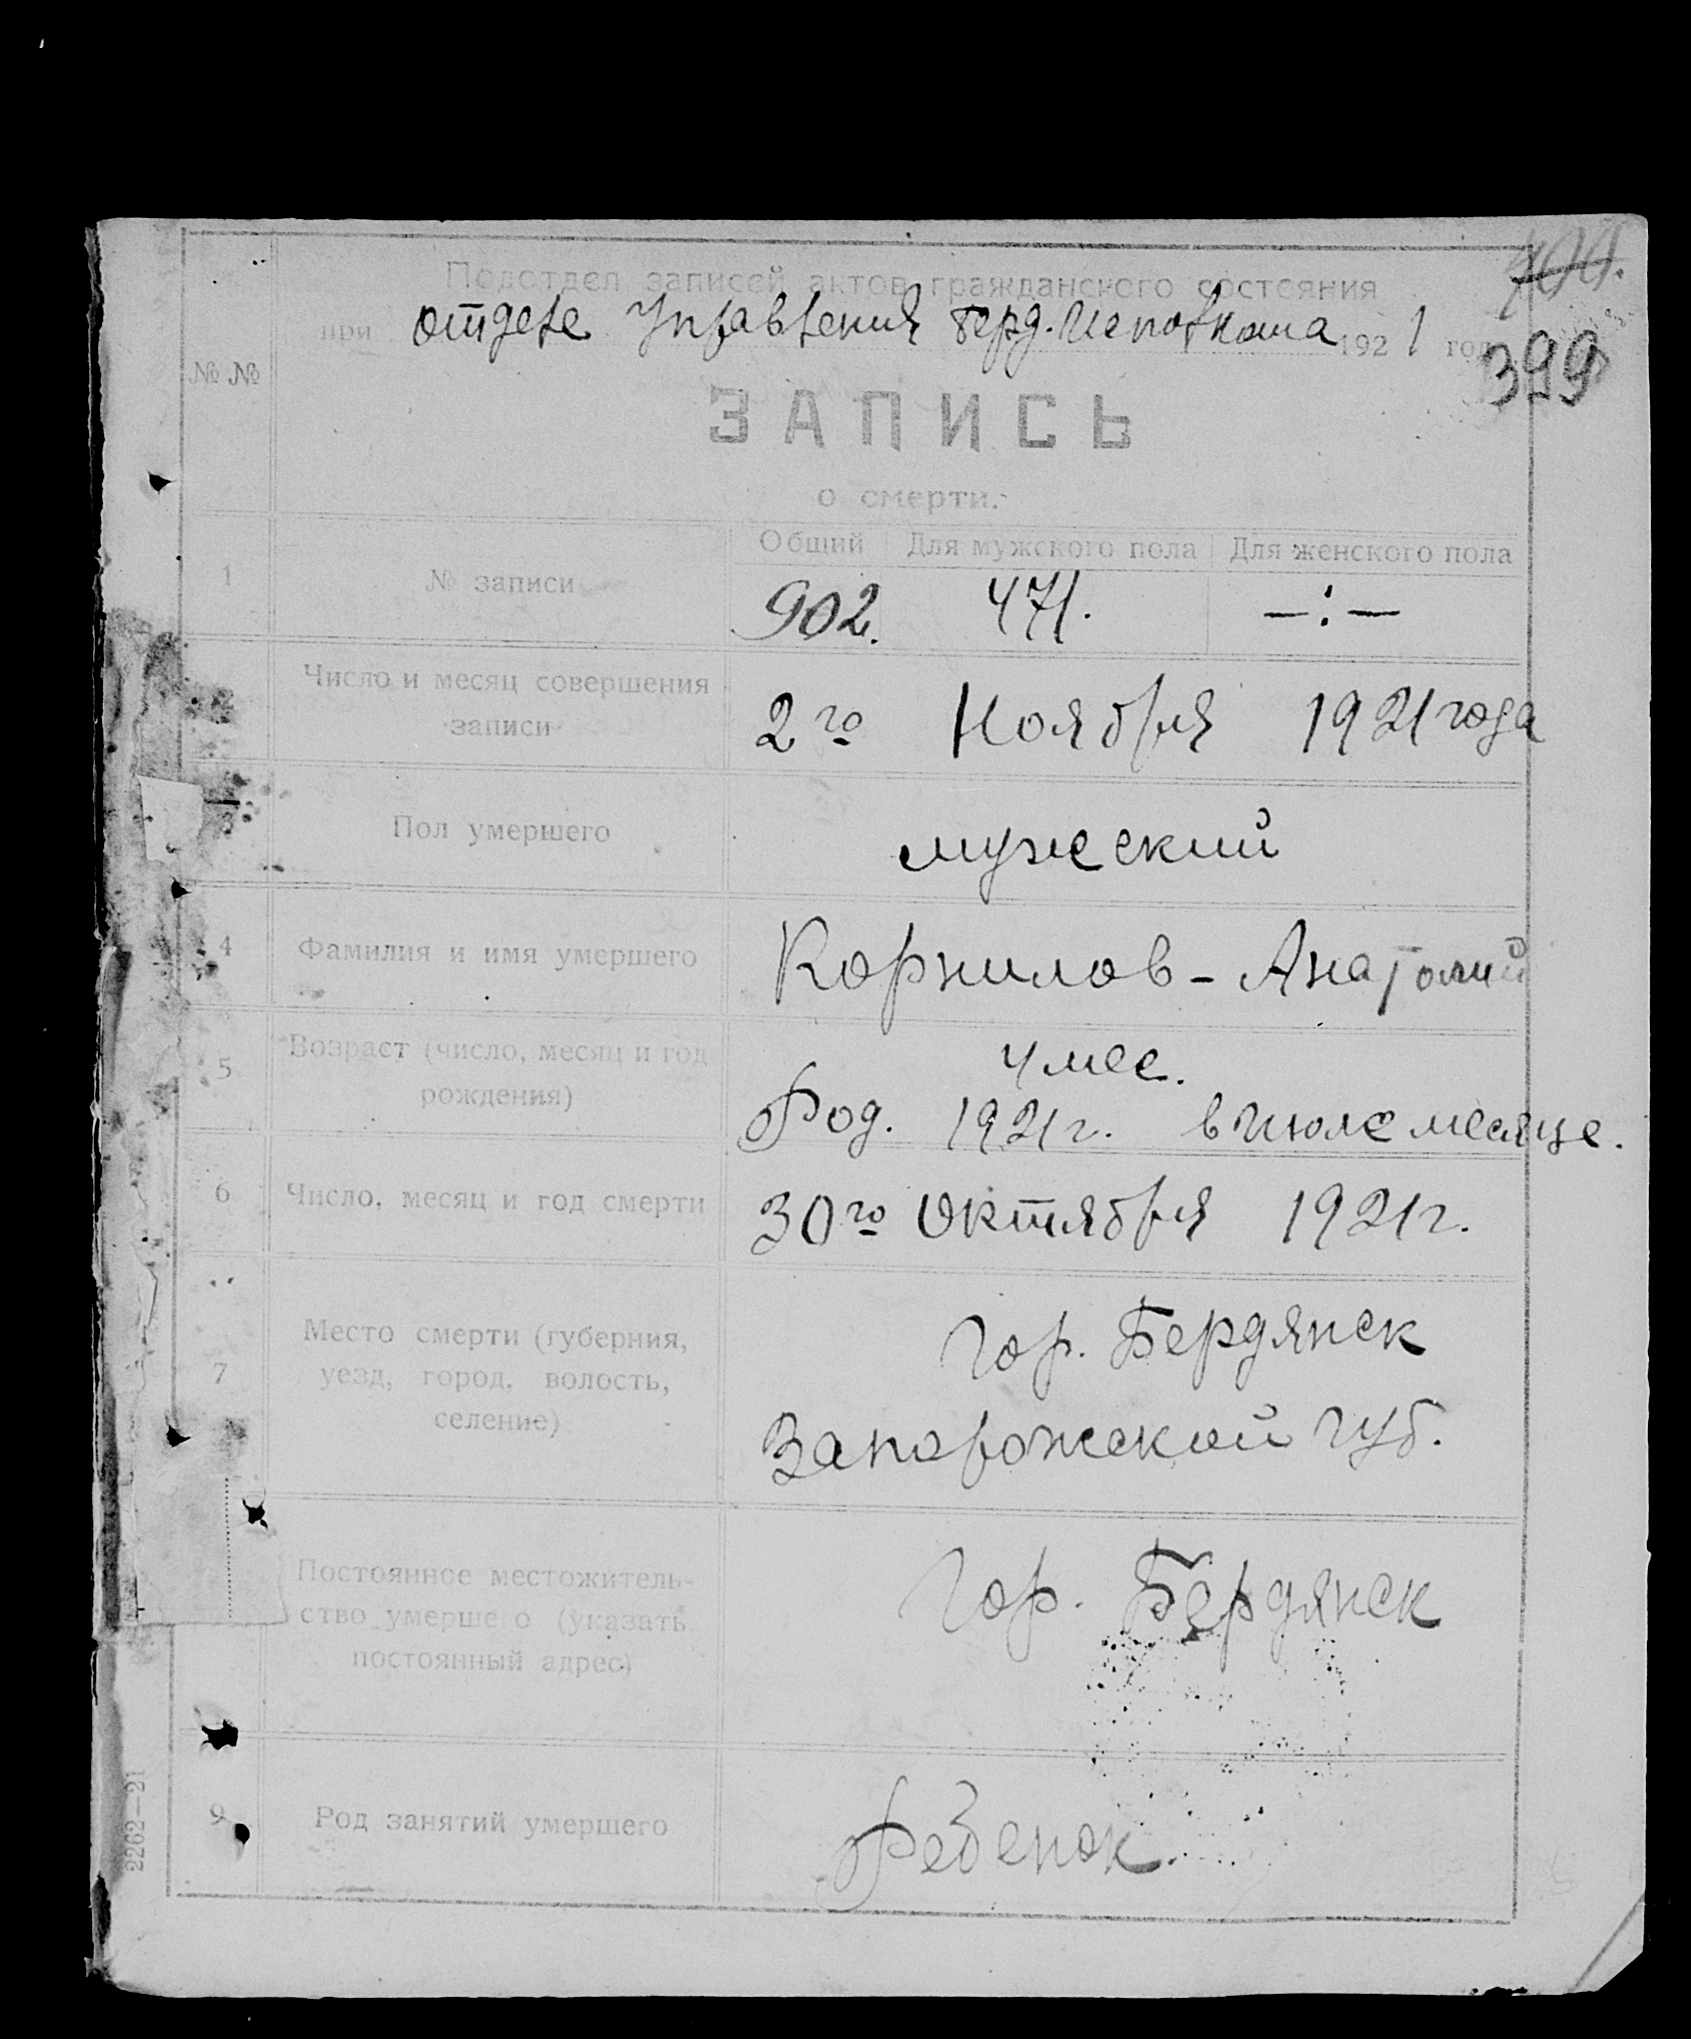 399
Подотдел записей актов гражданского состояния
при отделе Управления Берд. Исполкома 1921 год
№ №
ЗАПИСЬ
о смерти.
Общий Для мужского пола Для женского пола
1 № записи 902. 471. —:—
2 Число и месяц совершения
записи
2го Ноября 1921 года
3 Пол умершего мужеский
4 Фамилия и имя умершего Корнилов - Анатолий
5 Возраст (число, месяц и год
рождения)
4 мес.
Род. 1921 г. в Июле месяце.
6 Число, месяц и год смерти 30го Октября 1921 г.
7 Место смерти (губерния,
уезд, город, волость,
селение)
Гор. Бердянск
Запорожской губ.
Постоянное местожитель-
ство умерше о (указать
постоянный адрес)
Гор. Бердянск
9 Род занятий умершего Ребенок.
2262—21